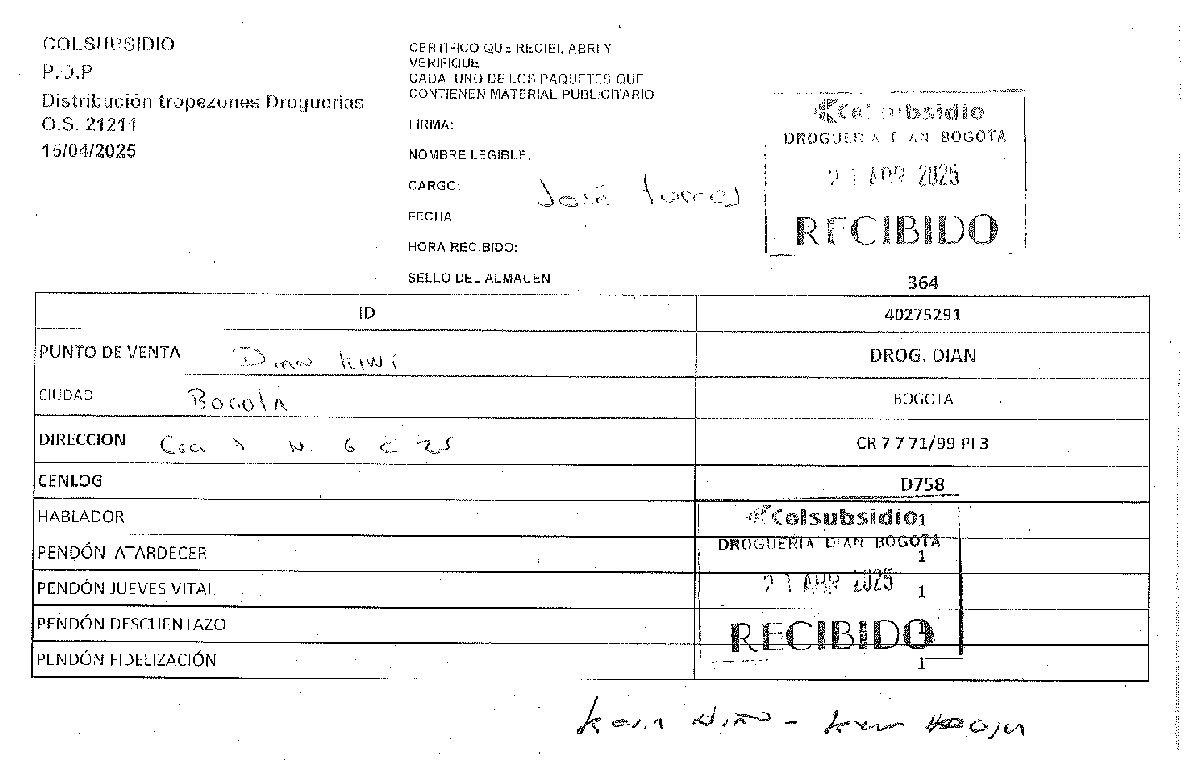 COLSUBSIDIO
P.O.P
Distribución tropezones Droguerias
O.S. 21211
15/04/2025
CERTIFICO QUE RECIBI, ABRI Y
VERIFIQUE
CADA UNO DE LOS PAQUETES QUE
CONTIENEN MATERIAL PUBLICITARIO
FIRMA:
NOMBRE LEGIBLE:
CARGO:
José Torres
FECHA
HORA RECIBIDO:
SELLO DEL ALMACEN
Colsubsidio
DROGUERIA DIAN BOGOTA
21 ABR 2025
RECIBIDO
364
ID 40275291
PUNTO DE VENTA Dian DROG. DIAN
CIUDAD Bogota BOGOTA
DIRECCION CR 7 7 71/99 PI 3
CENLOG D758
HABLADOR 1
PENDÓN ATARDECER 1
PENDÓN JUEVES VITAL 1
PENDÓN DESCUENTAZO 1
PENDÓN FIDELIZACIÓN 1
Colsubsidio
DROGUERIA DIAN BOGOTA
21 ABR 2025
RECIBIDO